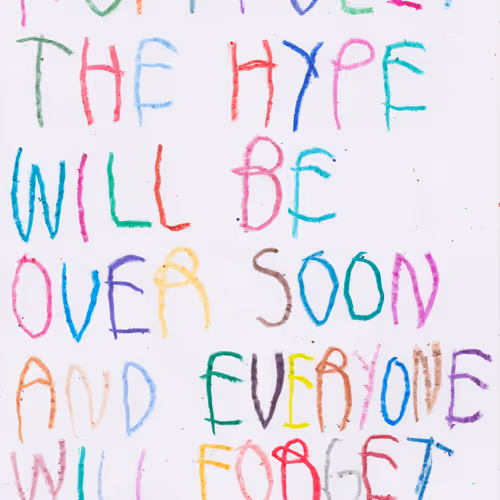 THE HYPE
WILL BE
OVER SOON
AND EVERYONE
WILL FORGET